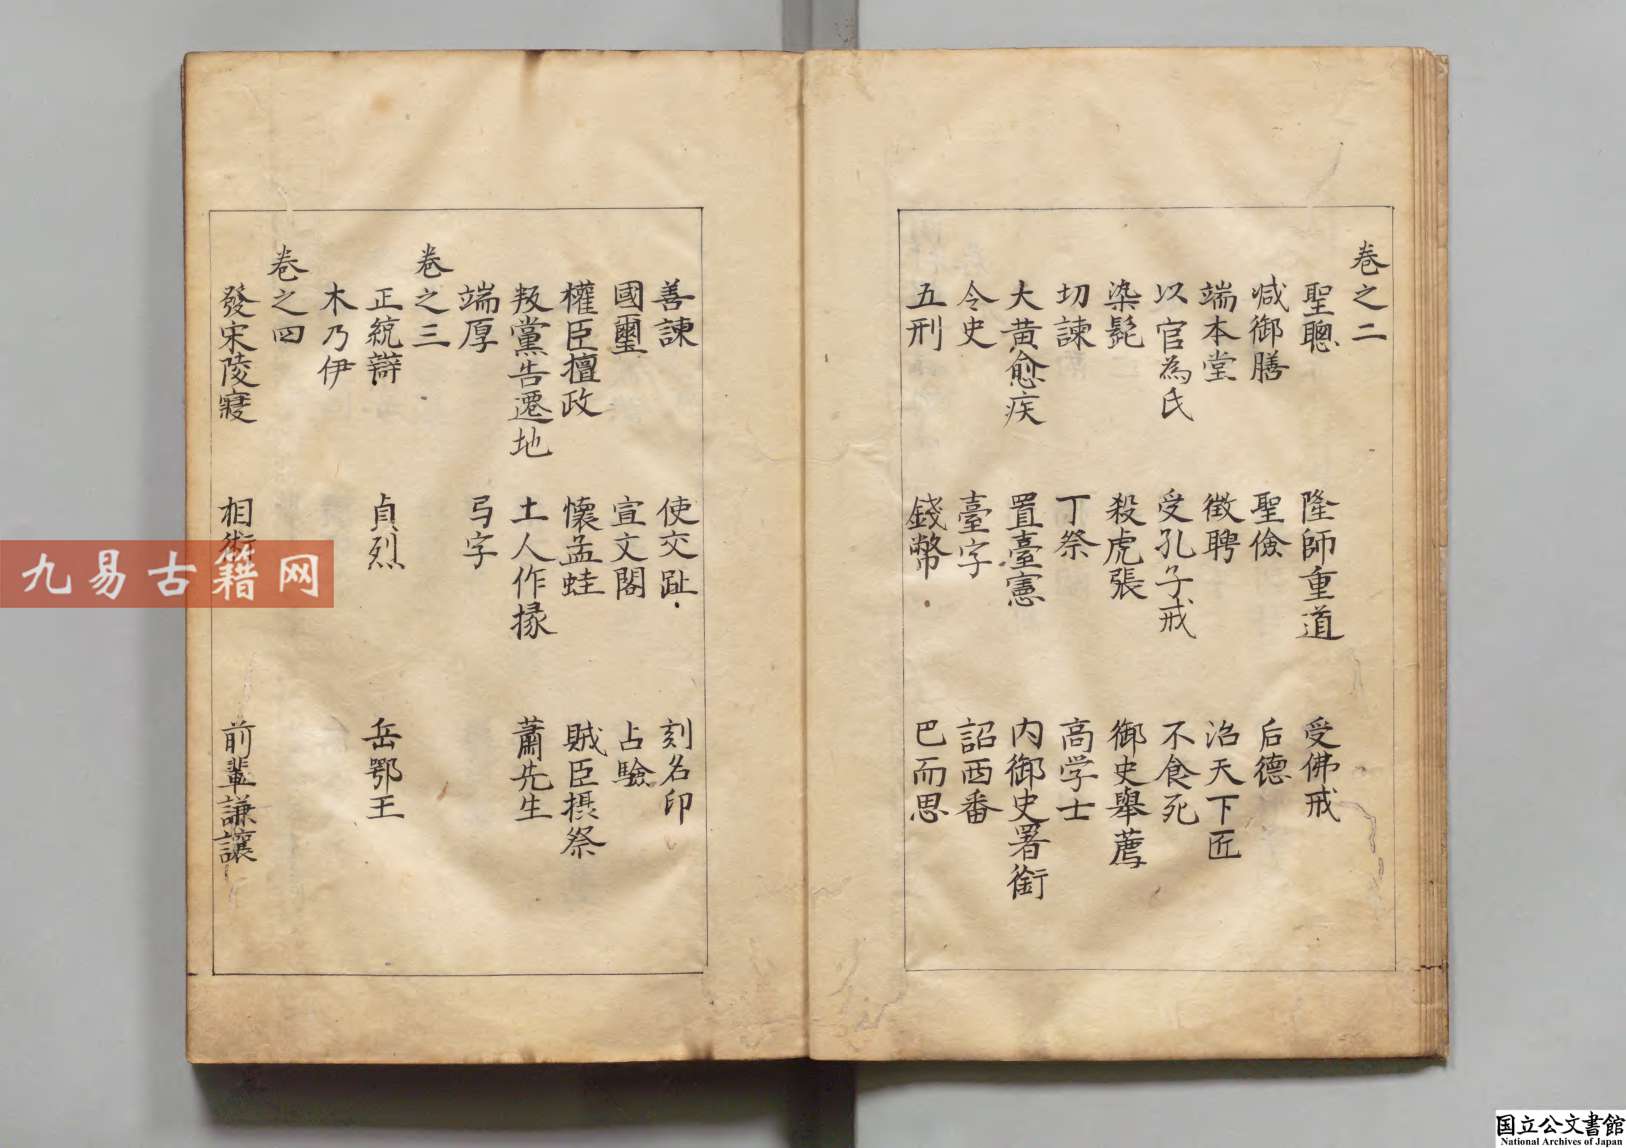 卷之二
聖聰 隆師重道 受佛戒
减御膳 聖儉 后德
端本堂 徵聘 治天下匠
以官為氏 受孔子戒 不食死
染髭 殺虎張 御史舉薦
切諫 丁祭 高学士
大黄愈疾 置臺憲 内御史署銜
令史 臺字 詔西番
五刑 錢幣 巴而思
善諫 使交趾 刻名印
國璽 宣文閣 占驗
權臣擅政 懷孟蛙 賊臣摂祭
叛黨告遷地 土人作掾 蕭先生
端厚 弓字
卷之三
正統辯 貞烈 岳鄂王
木乃伊
卷之四
發宋陵寢 相術 前輩謙讓
九易古籍网
国立公文書館
National Archives of Japan